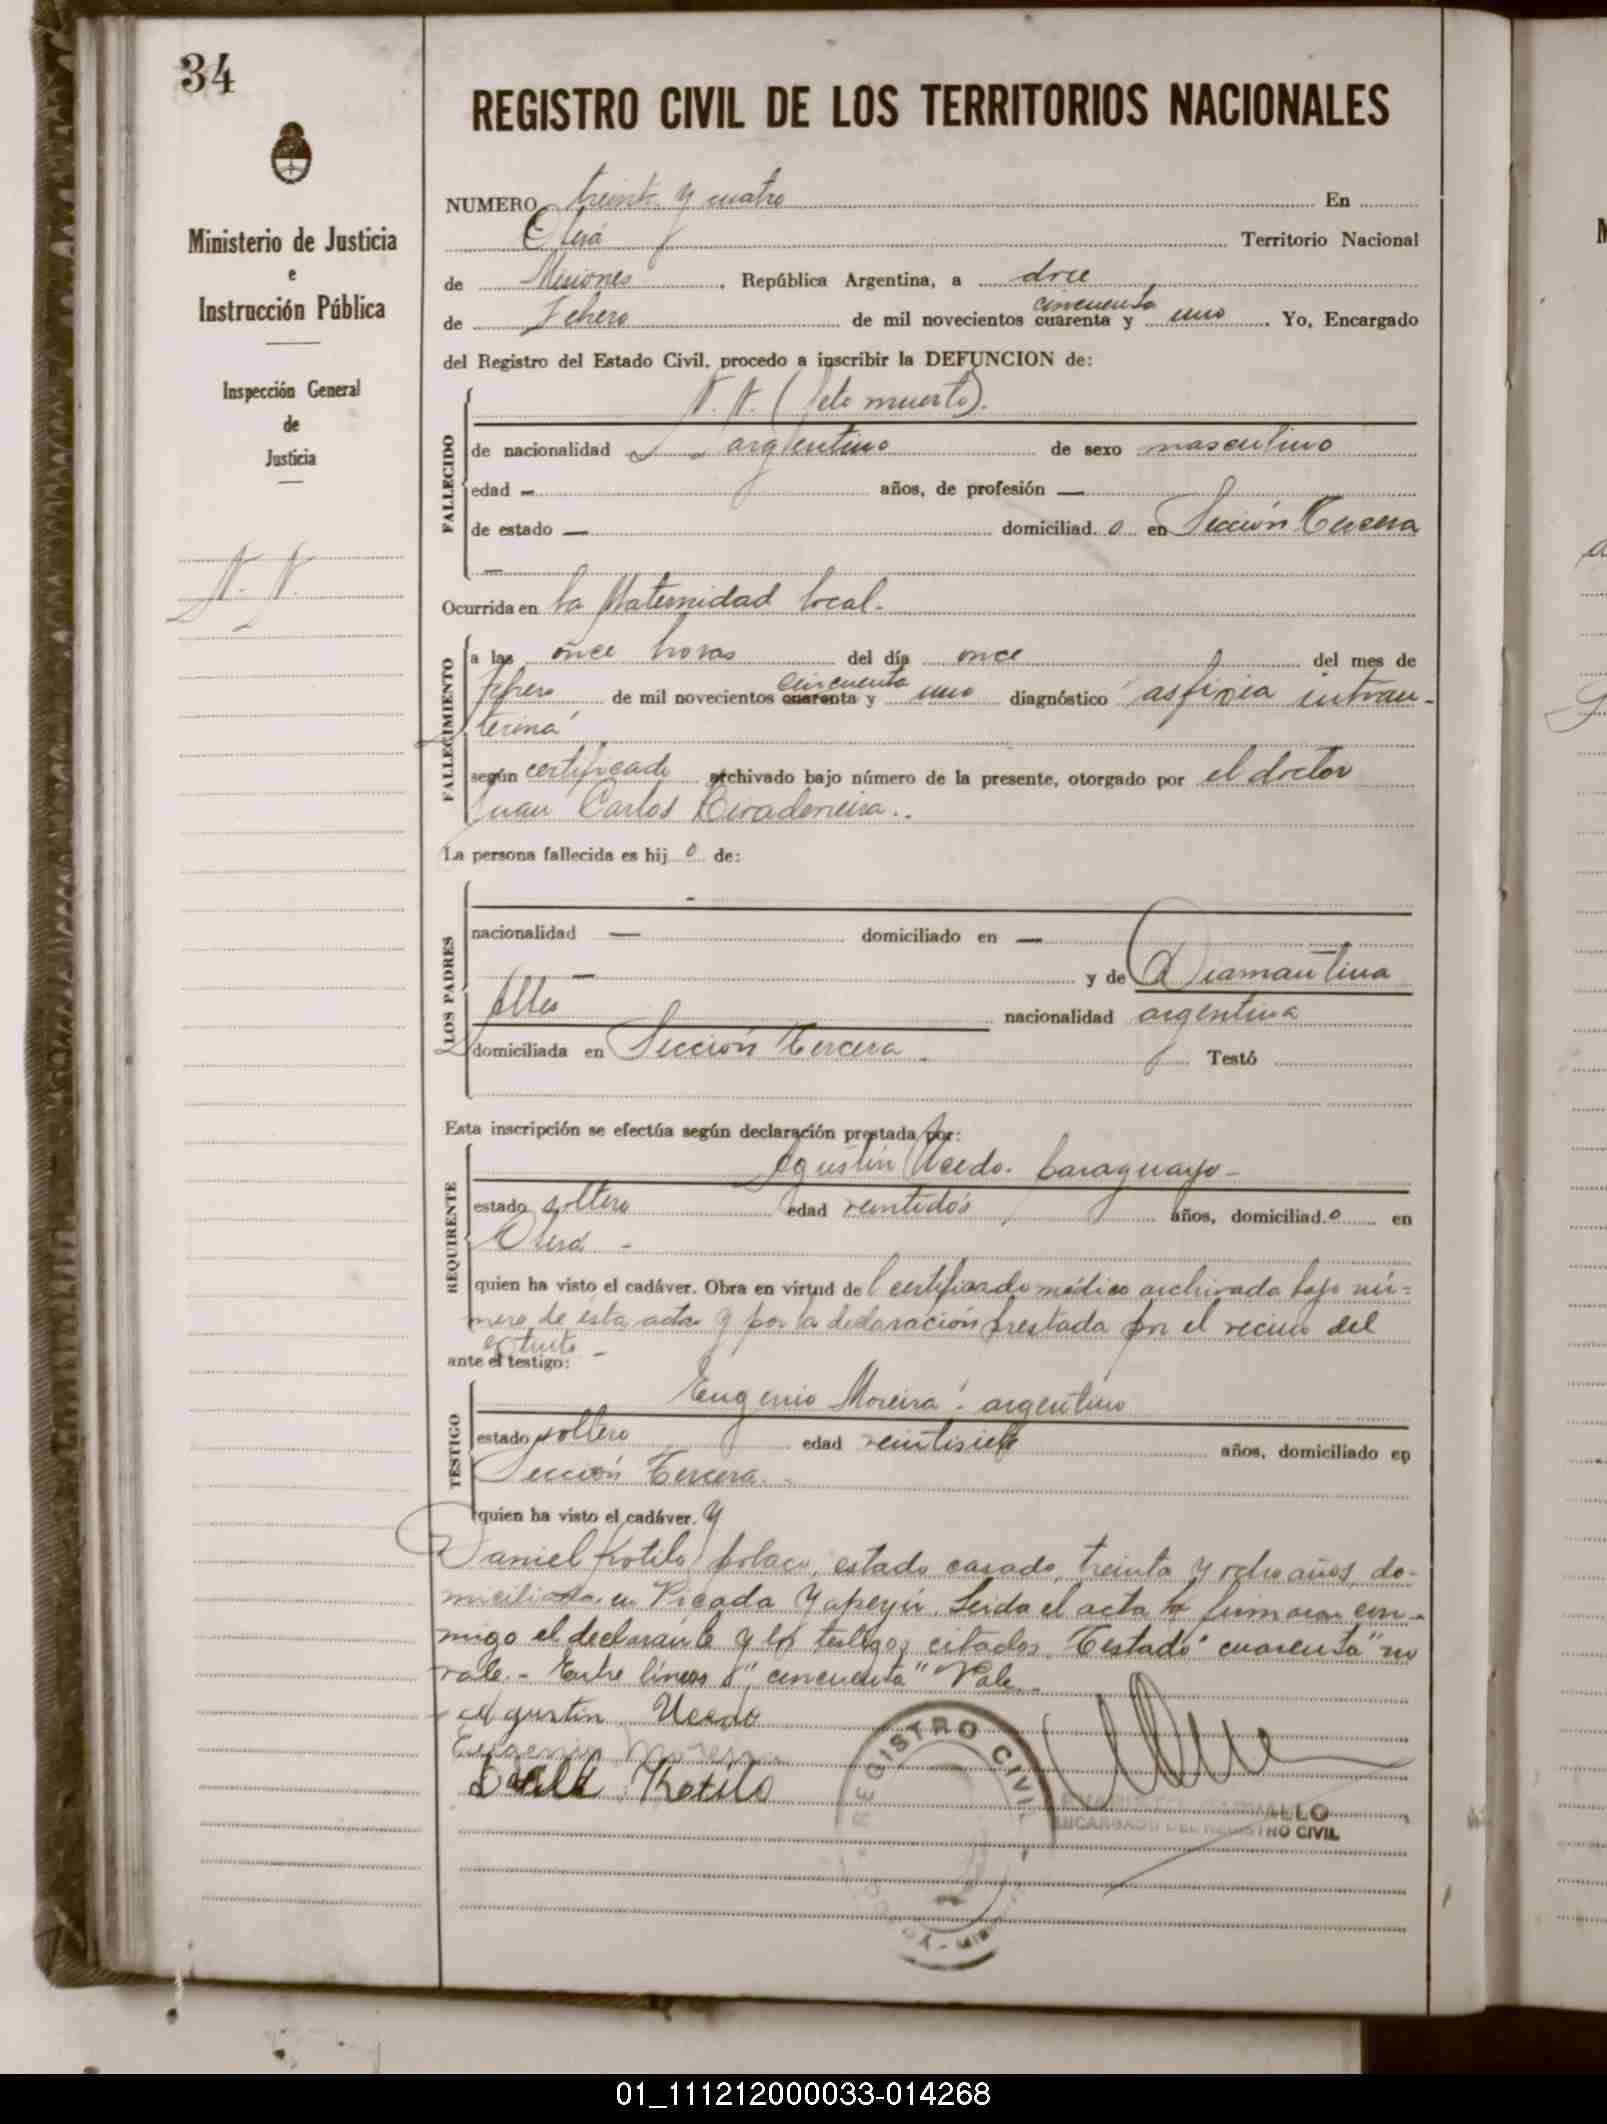 34
REGISTRO CIVIL DE LOS TERRITORIOS NACIONALES
Ministerio de Justicia
e
Instrucción Pública
Inspección General
de
Justicia
N. N.
NUMERO treinta y cuatro En
Oberá Territorio Nacional
de Misiones, República Argentina, a doce
cincuenta
de Febrero de mil novecientos cuarenta y uno. Yo, Encargado
del Registro del Estado Civil, procedo a inscribir la DEFUNCION de:
N. N. (feto muerto).
FALLECIDO
de nacionalidad argentino de sexo masculino
edad — años, de profesión —
de estado — domiciliad o en Sección Tercera
—
Ocurrida en la Maternidad local.
FALLECIMIENTO
a las once horas del día once del mes de
cincuenta
Febrero de mil novecientos cuarenta y uno diagnóstico asfixia intrau-
terina
según certificado archivado bajo número de la presente, otorgado por el doctor
Juan Carlos
La persona fallecida es hij o de:
LOS PADRES
-
nacionalidad — domiciliado en —
— y de Diamantina
nacionalidad argentina
domiciliada en Sección Tercera. Testó
Esta inscripción se efectúa según declaración prestada por:
REQUIRENTE
Agustín Ucedo. Paraguayo-
estado soltero edad veintidós años, domiciliad o en
Oberá. -
quien ha visto el cadáver. Obra en virtud del certificado médico archivado bajo nú-
mero de ésta acta y por la declaración prestada por el vecino del
ante el testigo:
TESTIGO
Eugenio Moreira. argentino
estado soltero edad veintisiete años, domiciliado en
Sección Tercera. -
quien ha visto el cadáver. y
Daniel Kotilo polaco, estado casado, treinta y ocho años, do-
miciliado en Picada Yapeyú. Leida el acta la firmaron con-
migo el declarante y los testigos citados. Testado "cuarenta" no
vale. - Entre líneas "cincuenta" Vale.
Agustin Ucedo
Eugenio
Kotilo
REGISTRO CIVIL
ENCARGADO DEL REGISTRO CIVIL
01_111212000033-014268